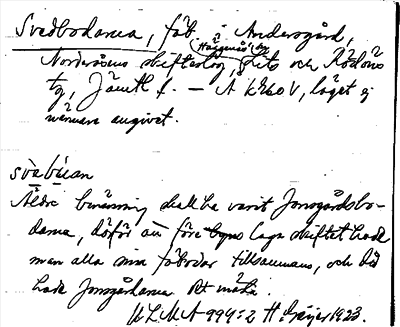 Svedbodarna, fäb. i Andersgård,
Häggenås by
Norderåsens skifteslag, Lits och Rödöns
tg, Jämtl. f. — A K 260 V, läget ej
närmare angivet.
svèbúan
Äldre benämning skall ha varit Jonsgårdsbo-
darna, därför att före laga skiftet hade
man alla sina fäbodar tillsammans, och då
hade Jonsgårdarna
ULMA 999:2 H. Geijer 1923.